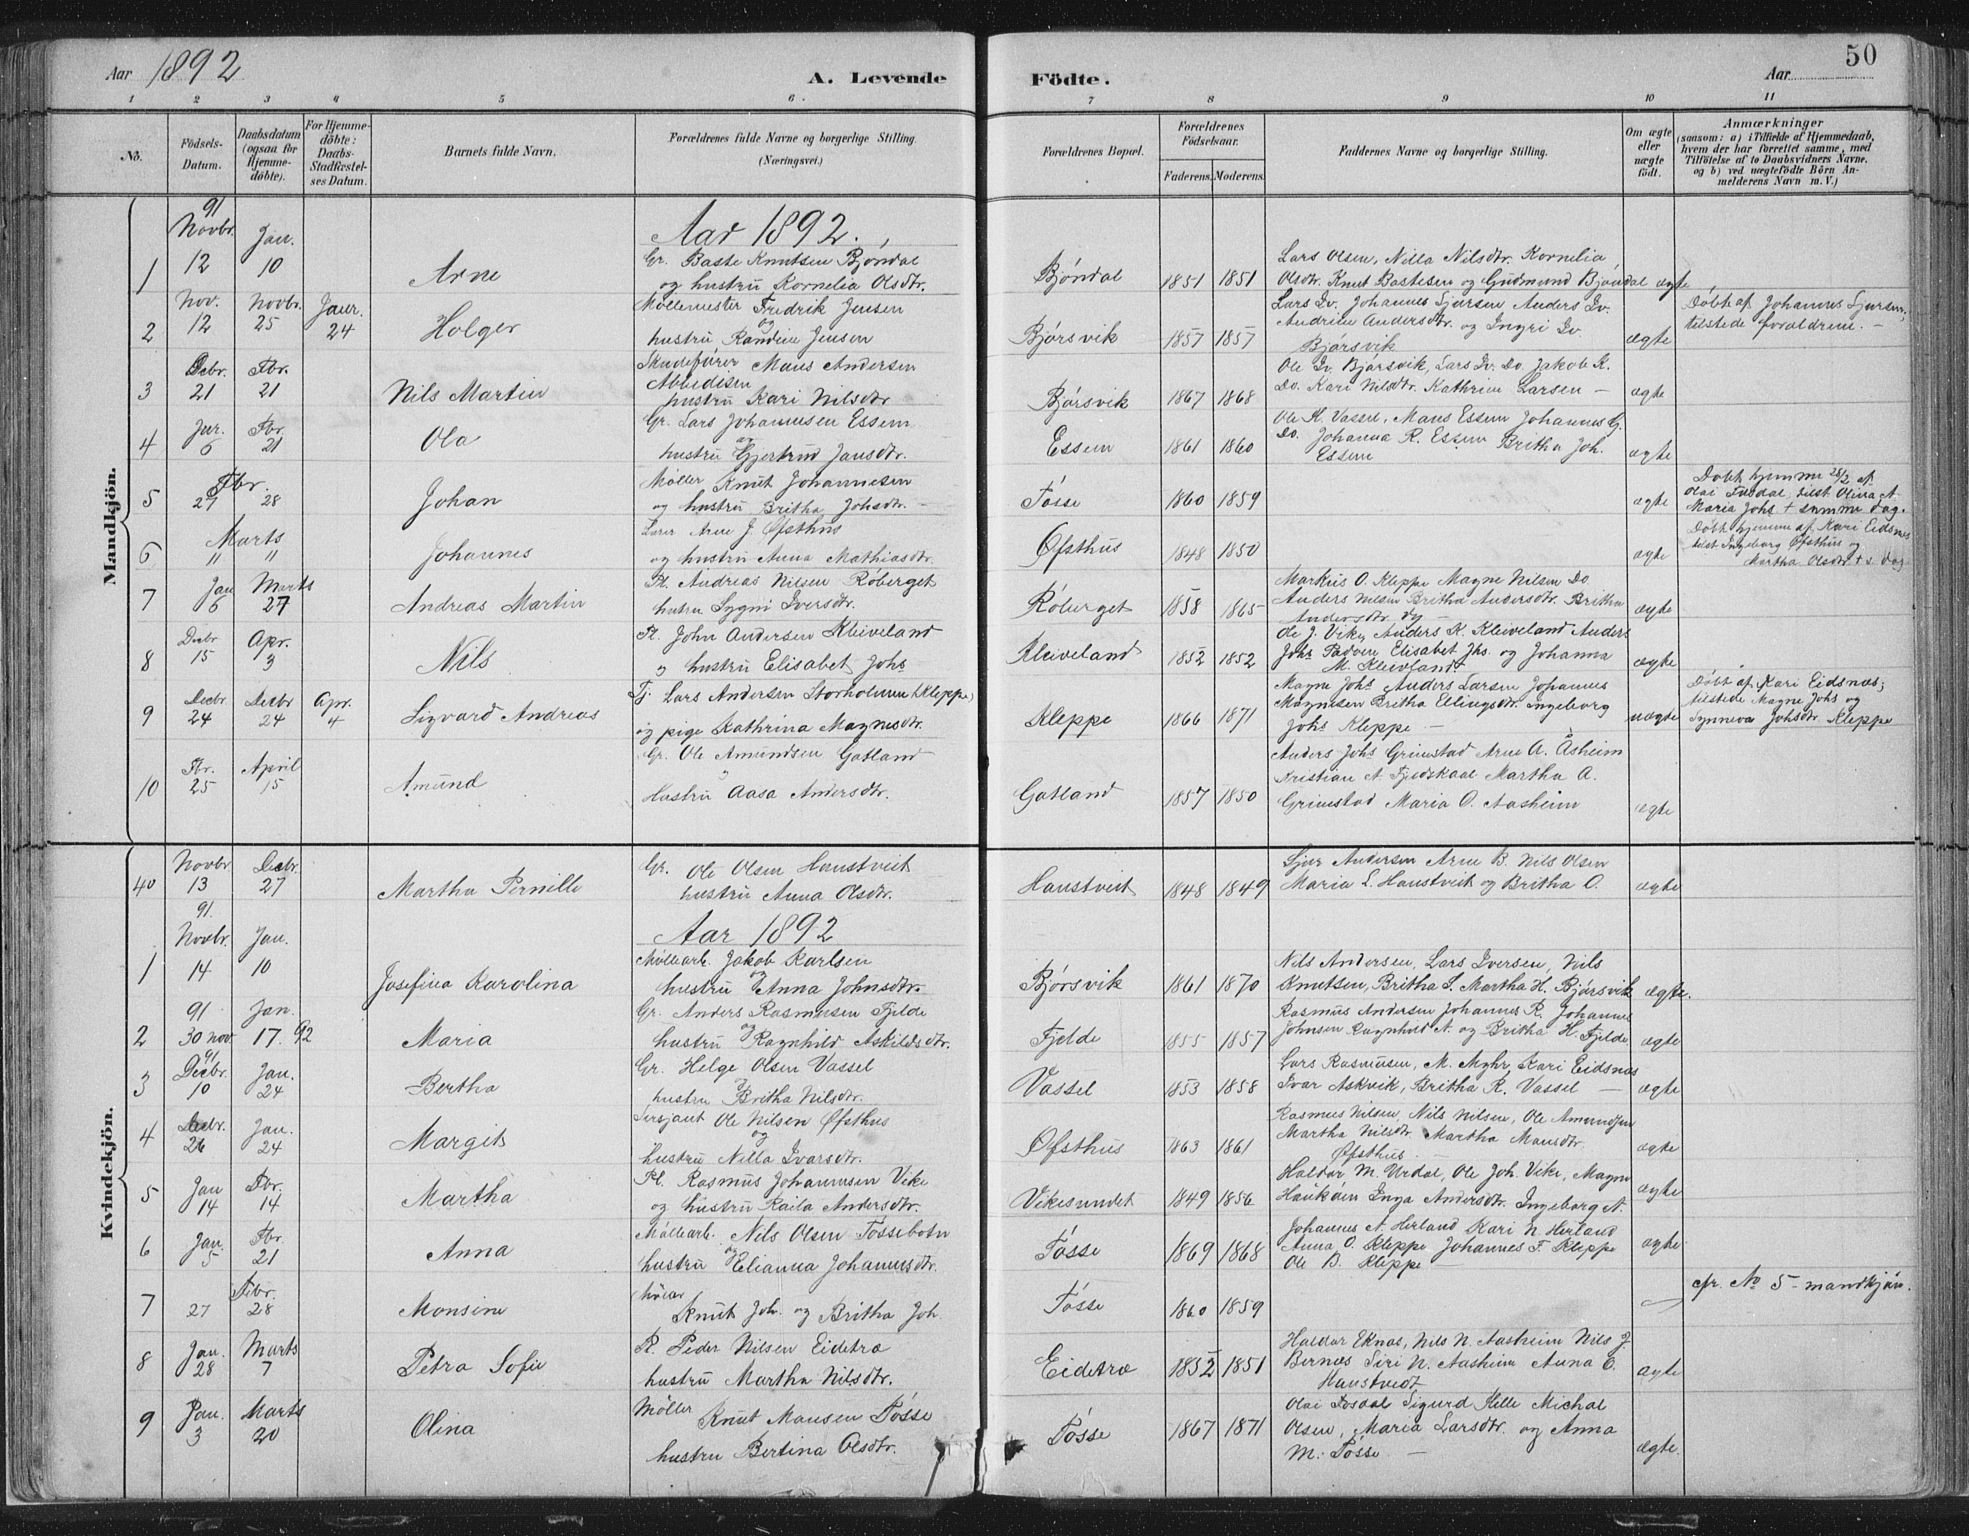 50
Aar 1892
A. Levende Födte.
Aar
1 2 3 4 5 6. 7 8 9 10 11
No.
Födsels-Datum.
Daabsdatum (ogsaa for Hjemme-döbte).
For Hjemme-döbte: Daabs-Stadfæstel-ses Datum.
Barnets fulde Navn.
Forældrenes fulde Navne og borgerlige Stilling.
(Næringsvei.)
Forældrenes Bopæl.
Forældrenes Födselsaar.
Faderens. Moderens.
Faddernes Navne og borgerlige Stilling.
Om ægte eller uægte födt.
Anmærkninger
(saasom: a) i Tilfælde af Hjemmedaab, hvem der har forrettet samme, med Tilföielse af to Daabsvidners Navne, og b) ved uægtefödte Börn An-melderens Navn m. V.)
Mandkjön.
Aar 1892.
1 91 Novbr. 12 Jan. 10 Arne
Gr. Baste Knutsen Bjöndal
og hustru Kornelia Olsdtr.
Bjöndal 1851 1851
Lars Olsen, Nilla Nilsdtr. Kornelia
Olsdtr. Knut Bastesen og Gudmund Bjöndal ægte
2 Nov. 12 Novbr. 25 Janr. 24 Holger
Möllemester Fredrik Jensen
og
hustru Randine Jensen
Bjørsvik 1857 1857
Lars Iv. Johannes Sjursen Anders Iv.
Andrine Andersdtr. og Ingri Iv.
Bjørsvik ægte
Døbt af Johannes Sjursen,
tilstede forældrene. –
3 Decbr. 21 Fbr. 21 Nils Martin
Skudefører Mans Andersen
hustru Kari Nilsdtr
Bjørsvik 1867 1868
Ole Iv. Bjørsvik, Lars Iv. Do. Jakob K.
Do. Kari Nilsdtr. Kathrine Larsen – ægte
4 6 Fbr. 21 Ola
Gr. Lars Johannesen Essem
og
hustru Gjertrud Jansdtr.
Essem 1861 1860
Ole K. Vassel, Mans Essem Johannes G.
Do. Johanna R. Essem Britha Joh.
Essem ægte
5 Fbr. 27 28 Johan
Møller Knut Johannesen
og hustru Britha Johsdtr. –
Tøsse 1860 1859 ægte
Døbt hjemme 28/2 af
Olai Fosdal, tilst Olina A
Maria Johs + samme dag.
6 Marts " " Johannes
Lærer Arne J. Øfsthus
og hustru Anna Mathiasdtr.
Øfsthus 1848 1850 ægte
Døbt hjemme af Kari Eidsnes
tilst Ingeborg Øfsthus og
Martha Olsdtr + s. dag
7 Jan 6 Marts 27 Andreas Martin
Pl. Andreas Nilsen Røberget
hustru Sygni Iversdtr.
Røberget 1858 1865
Markus O. Kleppe Magne Nilsen Do
Anders Nilsen Britha Andersdtr. Britha
Andersdtr. ægte
8 Decbr 15 Apr. 3 Nils
Pl. John Andersen Kleiveland
og hustru Elisabet Johs
Kleiveland 1852 1852
Ole J. Vike, Anders K. Kleiveland Anders
Johs Elisabet Jhs. og Johanna
M. Kleivland ægte
9 Decbr 24 Decbr 24 Apr. 4 Sigvard Andreas
Tj. Lars Andersen Storholmen (Kleppe)
og pige Kathrina Magnesdtr.
Kleppe 1866 1871
Magne Johs Anders Larsen Johannes
Magnesen Britha Ellingsdtr. Ingeborg
Johs Kleppe – uægte
Døbt af Kari Eidsnæs;
tilstede Magne Johs og
Synneva Johsdtr. Kleppe
10 Fbr. 25 April 15 Amund
Gr. Ole Amundsen Gatland
Hustru Aasa Andersdtr.
Gatland 1857 1850
Anders Johs Grimstad Arne A. Åsheim
Kristian A. Fjedskaal Martha A.
Grimstad Maria O. Aasheim ægte
Kvindekjön.
40 Novbr 13 Decbr. 27 Martha Pernille
Gr. Ole Olsen Haustveit
hustru Anna Olsdtr.
Haustveit 1848 1849
Sjur Andersen Arne B. Nils Olsen
Maria L. Haustveit og Britha O. ægte
Aar 1892
1 91. Novbr. 14 Jan. 10 Josefina Karolina
Møllearb. Jakob Karlsen
og
hustru Anna Johnsdtr.
Bjørsvik 1861 1870
Nils Andersen, Lars Iversen, Nils
Knutsen, Britha S. Martha H. Bjørsvik ægte.
2 91 30 nov. Jan. 17. 92 Maria
Gr. Anders Rasmusen Fjelde
og
hustru Ragnhild Askildsdtr.
Fjelde 1855 1857
Rasmus Andersen Johannes R. Johannes
Johnsen Ragnhild A. og Britha H. Fjelde ægte
3 91 Decbr. 10 Jan. 24 Bertha
Gr. Helge Olsen Vassel
og
hustru Britha Nilsdtr.
Vassel 1853 1858
Lars Rasmusen, M. Myhr, Kari Eidsnes
Ivar Askvik, Britha R. Vassel – ægte
4 Decbr. 26 Jan. 24 Margit
Sersjant Ole Nilsen Øfsthus
og
hustru Nilla Ivarsdtr.
Øfsthus 1863 1861
Rasmus Nilsen, Nils Nilsen, Ole Amundsen
Martha Nilsdtr. Martha Mansdtr.
Øfsthus – ægte
5 Jan 14 Fbr. 14 Martha
Pl. Rasmus Johannesen Vike
og hustru Raila Andersdtr.
Vikesundet 1849 1856
Haldor M. Urdal, Ole Joh. Vike, Magne
Haukåm Inga Andersdtr. Ingeborg A. ægte
6 Jan. 5 Fbr. 21 Anna
Møllearb. Nils Olsen Tøssebotn
og
hustru Elianna Johannesdtr.
Tøsse 1869 1868
Johannes A. Herland Kari N. Herland
Anna O. Kleppe Johannes F. Kleppe
Ole B. Kleppe – ægte
7 Febr. 27 28 Monsine
Møller
Knut Joh. og Britha Joh.
Tøsse 1860 1859
cfr. No 5 – mandkjøn.
8 Jan. 28 Marts 7 Petra Sofie
Peder Nilsen Eidetræ
hustru Martha Nilsdtr.
Eidetræ 1852 1851
Haldor Eknæs, Nils N. Aasheim Nils J.
Bernes Siri N. Aasheim Anna O.
Haustvedt ægte
9 Jan. 3 Marts 20 Olina
Møller Knut Mansen Tøsse
hustru Bertina Olsdtr.
Tøsse 1867 1871
Olai Fosdal Sigurd Helle Michal
Olsen, Maria Larsdtr. og Anna
M. Tøsse – ægte